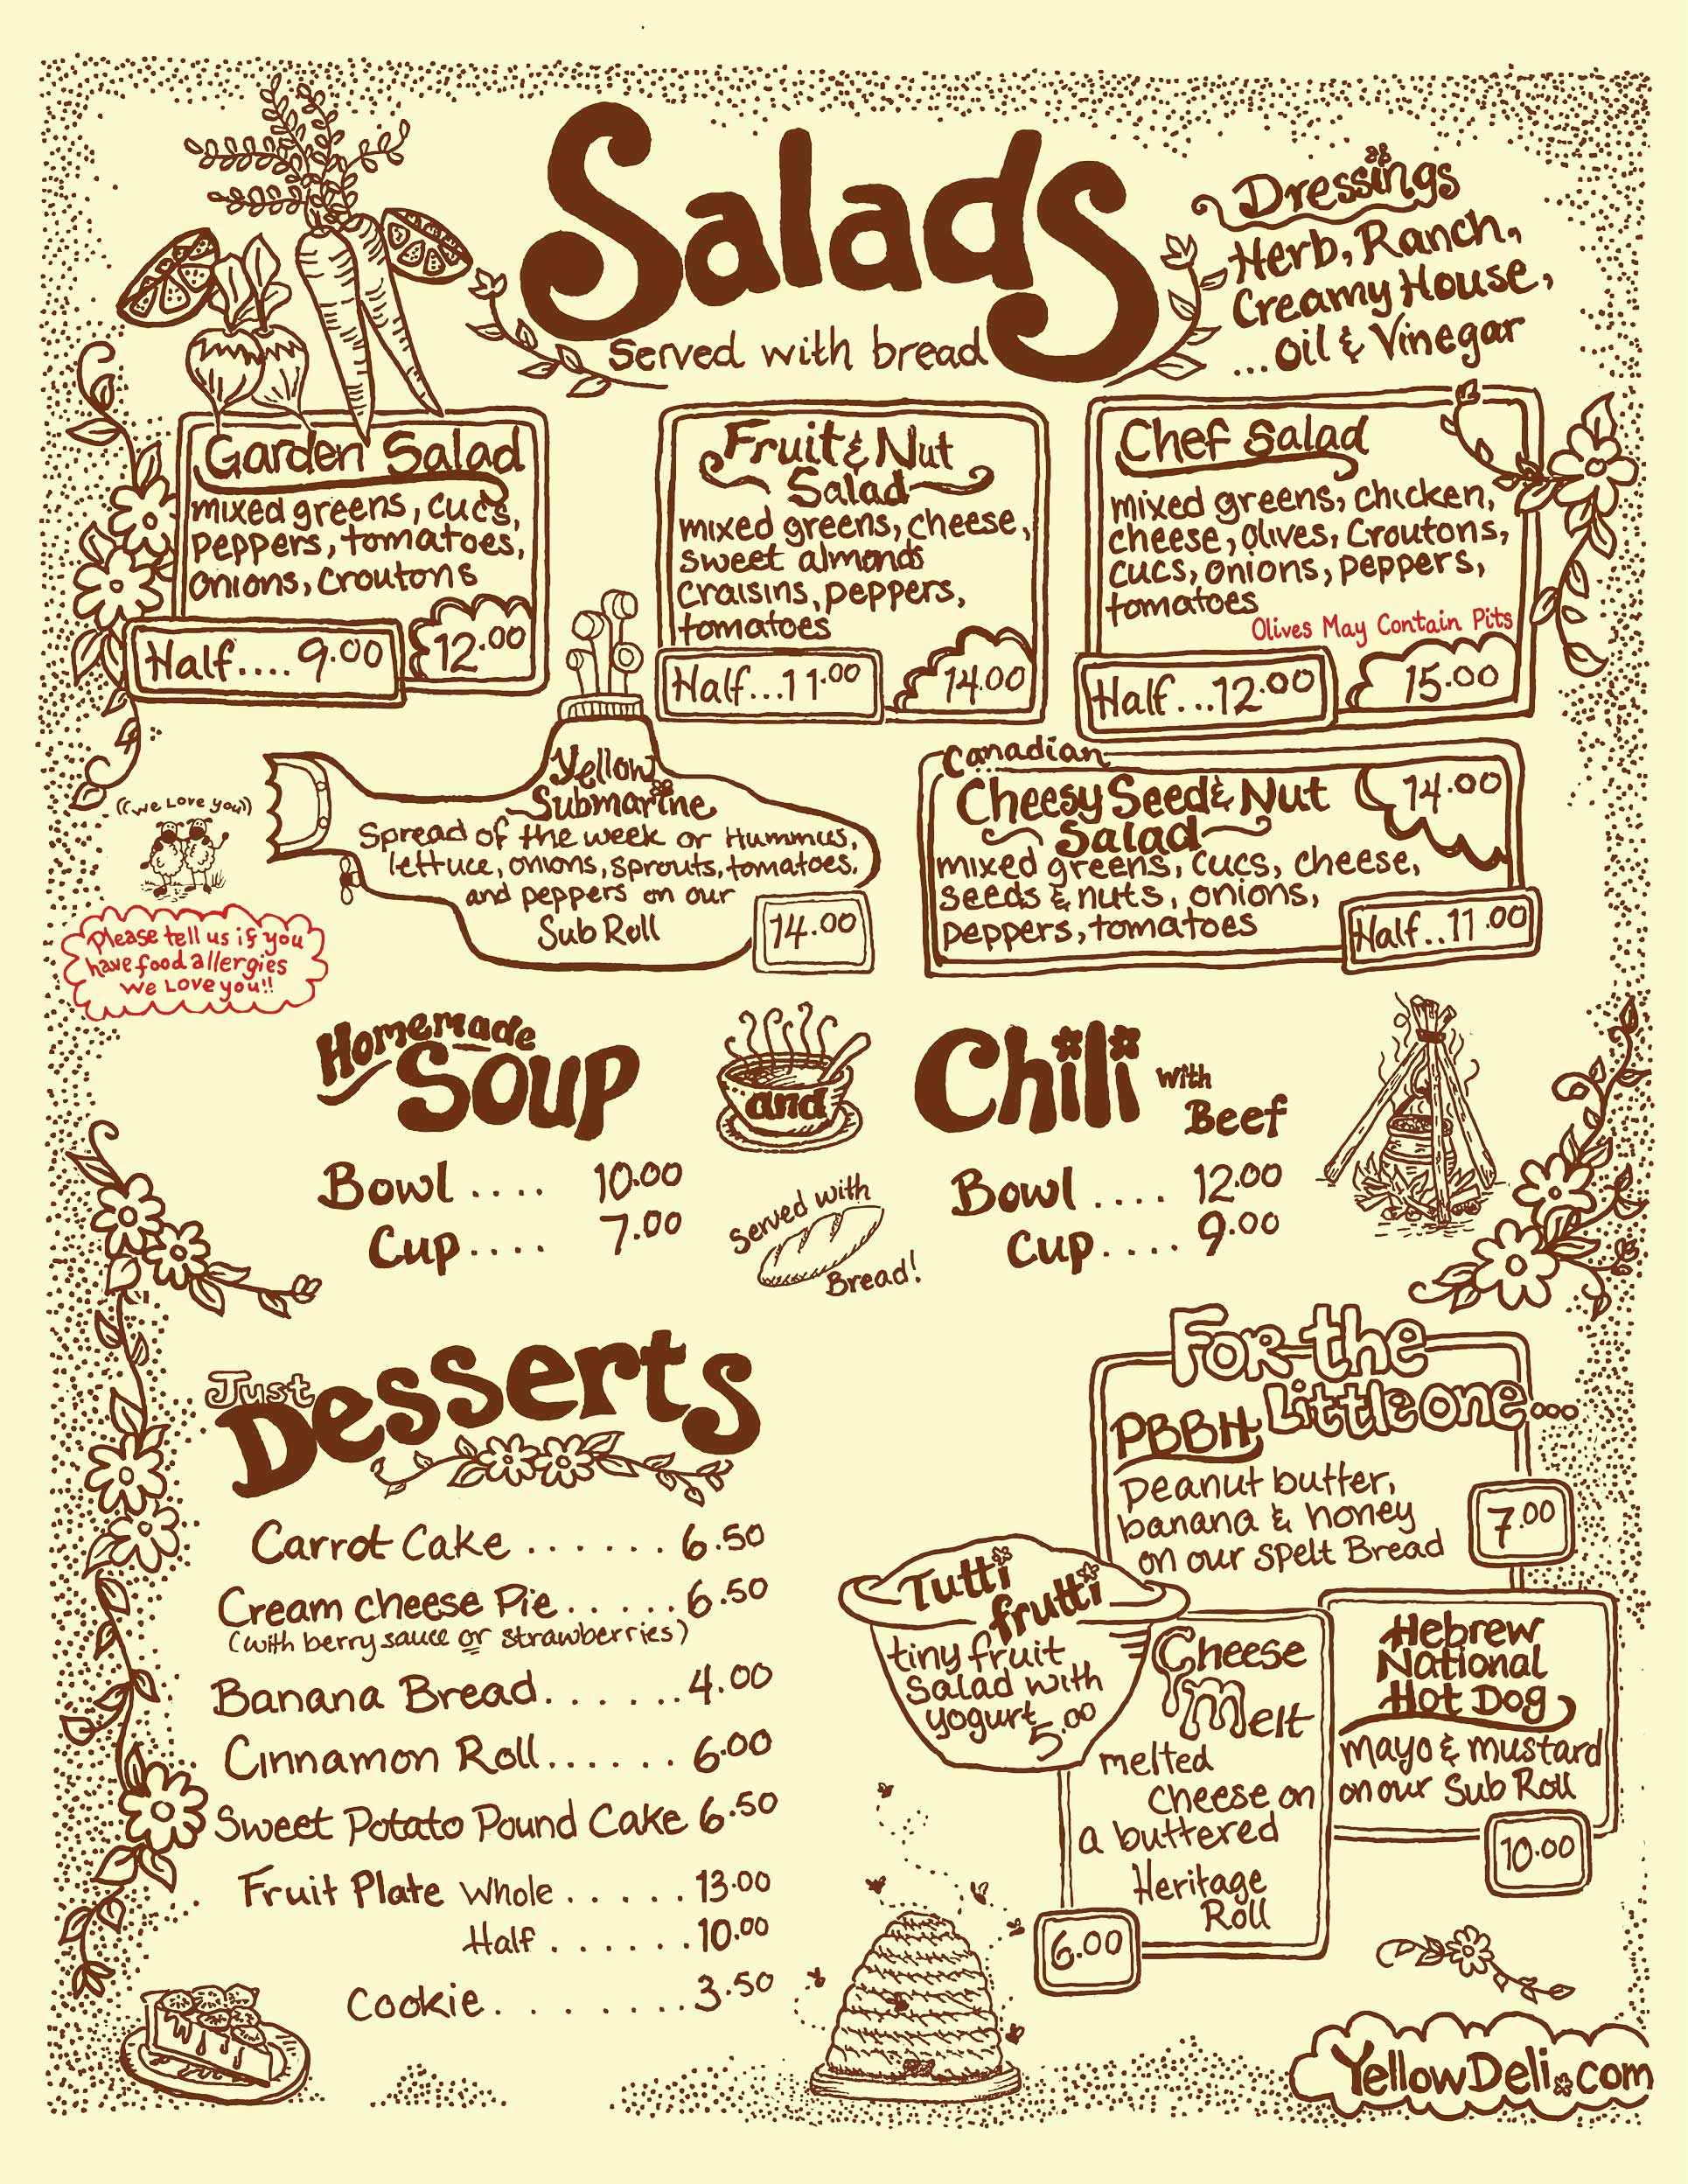 Salads
Served with bread
Dressings
Herb, Ranch,
Creamy House,
...oil & Vinegar
Garden Salad
mixed greens, cucs,
peppers, tomatoes,
onions, croutons
Half.... 9.00
12.00
Fruit & Nut
Salad
mixed greens, cheese,
sweet almonds
craisins, peppers,
tomatoes
Half...11.00
14.00
Chef Salad
mixed greens, chicken,
cheese, olives, Croutons,
cucs, onions, peppers,
tomatoes
Olives May Contain Pits
Half...12.00
15.00
((we Love you))
Please tell us if you
have food allergies
we Love you!!
Yellow
Submarine
Spread of the week or Hummus,
lettuce, onions, sprouts, tomatoes,
and peppers on our
Sub Roll
14.00
Canadian
Cheesy Seed & Nut
Salad
14.00
mixed greens, cucs, cheese,
seeds & nuts, onions,
peppers, tomatoes
Half..11.00
Homemade
Soup
and
Chili with
Beef
Bowl.... 10.00
Cup.... 7.00
Served with
Bread!
Bowl.... 12.00
Cup.... 9.00
Just
Desserts
Carrot Cake ...... 6.50
Cream cheese Pie......6.50
(with berry sauce or strawberries)
Banana Bread......4.00
Cinnamon Roll...... 6.00
Sweet Potato Pound Cake 6.50
Fruit Plate Whole ..... 13.00
Half ...... 10.00
Cookie........3.50
For the
Little one...
PBBH
peanut butter,
banana & honey
on our spelt Bread
7.00
Tutti
frutti
tiny fruit
Salad with
yogurt
5.00
Cheese
Melt
melted
cheese on
a buttered
Heritage
Roll
6.00
Hebrew
National
Hot Dog
mayo & mustard
on our Sub Roll
10.00
YellowDeli.com